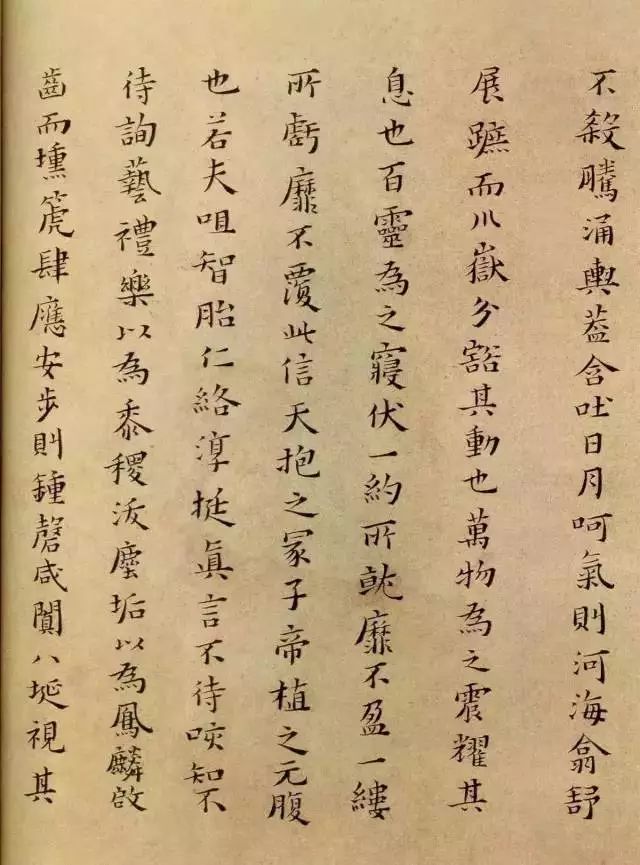 不殺騰涌輿蓋含吐日月呵氣則河海翕舒
展蹠而川嶽分豁其動也萬物為之震耀其
息也百靈為之寢伏一約所就靡不盈一縷
所虧靡不覆此信天抱之冢子帝植之元腹
也若夫咀智胎仁絡淳挺眞言不待咳知不
待詢藝禮樂以為黍稷泼塵垢以為鳳麟啟
齒而壎箎肆應安步則鍾磬咸闐八埏視其